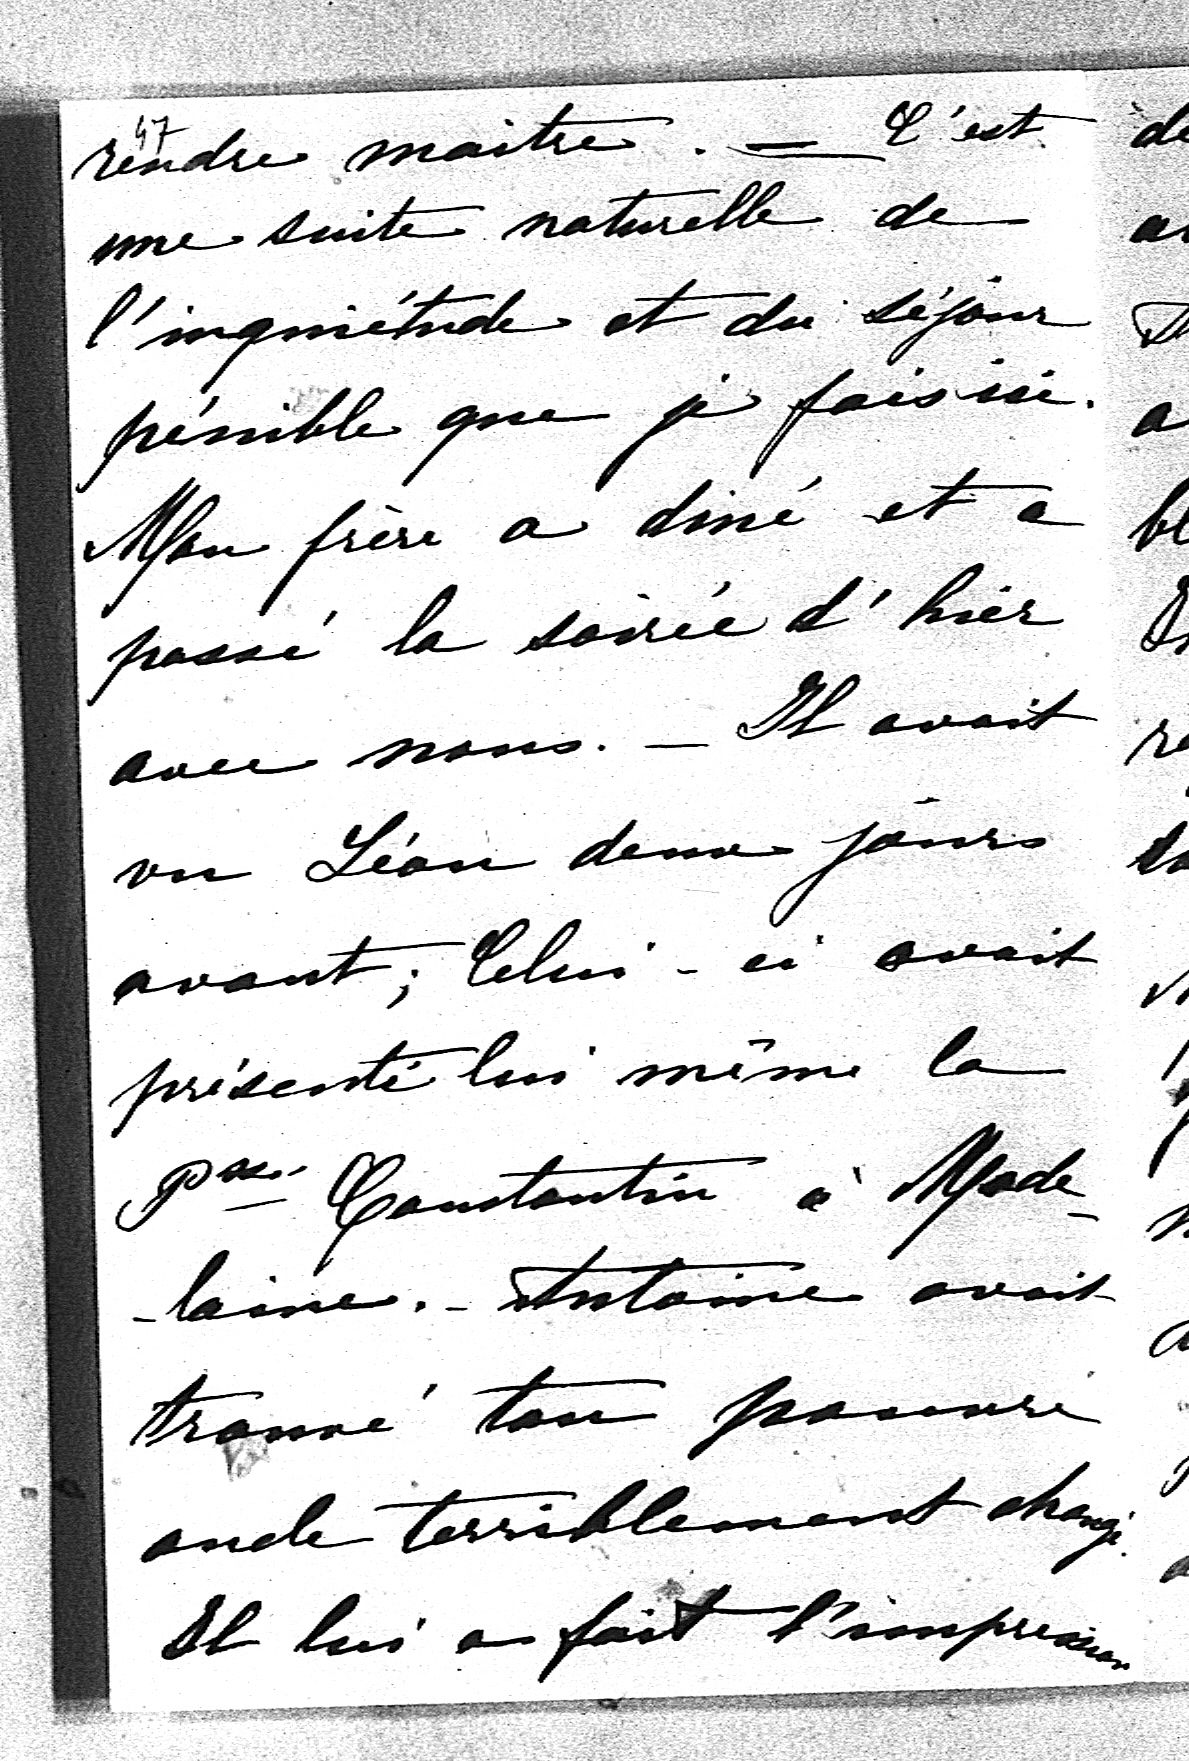 47
rendre maitre. — C'est
une suite naturelle de
l'inquiétude et du séjour
pénible que je fais ici.
Mon frère a diné et a
passé la soirée d'hier
avec nous. — Il avait
vu Léon deux jours
avant; Celui-ci avait
présenté lui même la
Psse Constantin à Made-
-laine. - Antoine avait
trouvé ton pauvre
oncle terriblement changé.
Il lui a fait l'impression